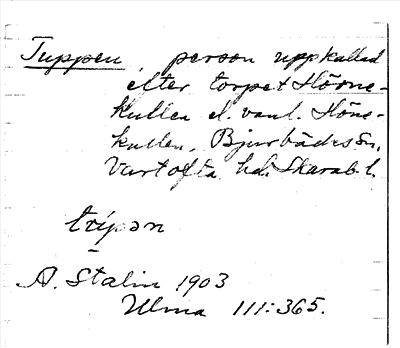 Tuppen, person uppkallad
efter torpet Höne-
kullen el. vanl. Höne-
kullen, Bjurbäcks sn,
Vartofta hd. Skarab. l.
A. Stalin 1903
Ulma 111:365.